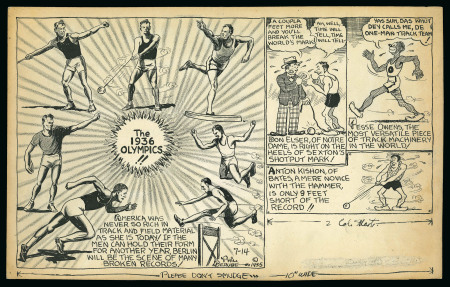 The
1936
OLYMPICS
!!
AMERICA WAS
NEVER SO RICH IN
TRACK AND FIELD MATERIAL
AS SHE IS TODAY! IF THE
MEN CAN HOLD THEIR FORM
FOR ANOTHER YEAR, BERLIN
WILL BE THE SCENE OF MANY
BROKEN RECORDS!
7-14
PHIL
BERUBE
©1935
A COUPLA
FEET MORE
AND YOU'LL
BREAK THE
WORLD'S MARK!
AH, WELL,
TIME WILL
TELL, TIME
WILL TELL
DON ELSER, OF NOTRE
DAME, IS RIGHT ON THE
HEELS OF SEXTON'S
SHOTPUT MARK!
YAS SUH, DAS WHUT
DEY CALLS ME, DE
ONE-MAN TRACK TEAM
JESSE OWENS, THE
MOST VERSATILE PIECE
OF TRACK MACHINERY
IN THE WORLD!
ANTON KISHON, OF
BATES, A MERE NOVICE
WITH THE HAMMER,
IS ONLY 9 FEET
SHORT OF THE
RECORD !!
2 Col.
PLEASE DON'T SMUDGE
10" WIDE